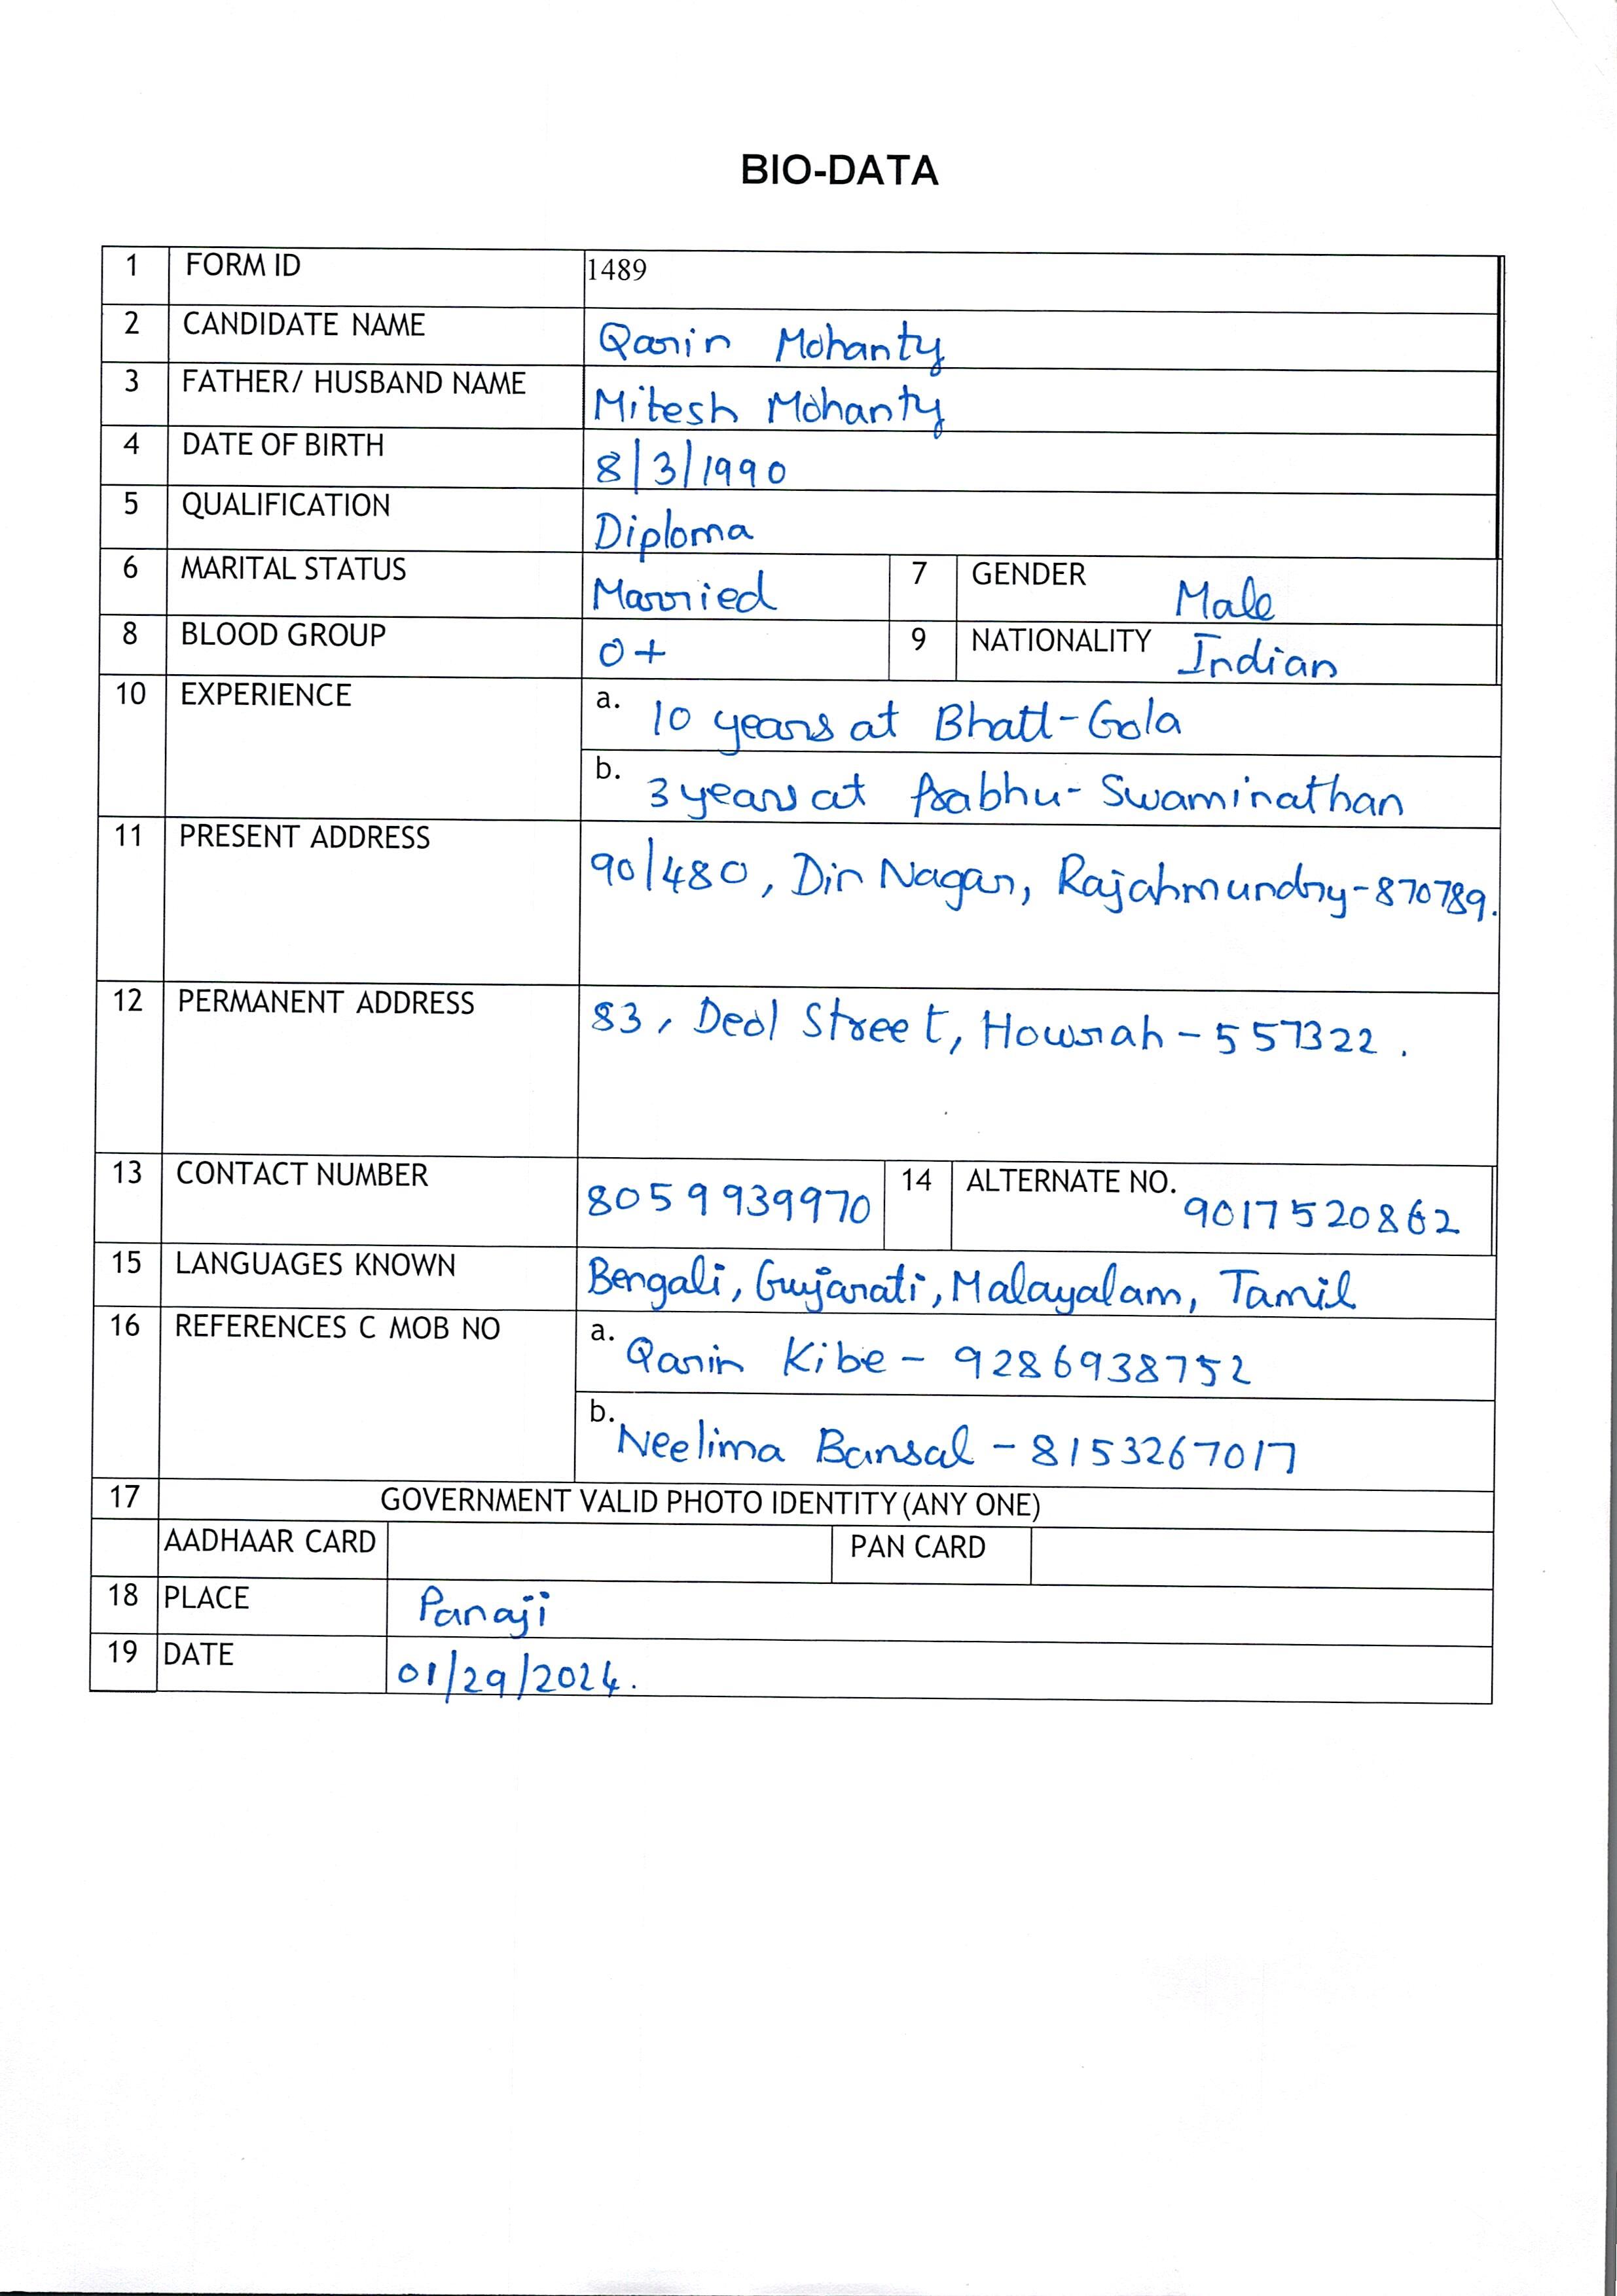 BIO-DATA
1 FORM ID 1489
2 CANDIDATE NAME Qarin Mohanty
3 FATHER/ HUSBAND NAME Mitesh Mohanty
4 DATE OF BIRTH 8/3/1990
5 QUALIFICATION Diploma
6 MARITAL STATUS Married 7 GENDER Male
8 BLOOD GROUP O+ 9 NATIONALITY Indian
10 EXPERIENCE a. 10 years at Bhatt-Gola
b. 3 years at Prabhu-Swaminathan
11 PRESENT ADDRESS 90/480, Din Nagar, Rajahmundry-870789.
12 PERMANENT ADDRESS 83, Deol Street, Howrah-557322.
13 CONTACT NUMBER 8059939970 14 ALTERNATE NO. 9017520862
15 LANGUAGES KNOWN Bengali, Gujarati, Malayalam, Tamil
16 REFERENCES C MOB NO a. Qarin Kibe - 9286938752
b. Neelima Bansal - 8153267017
17 GOVERNMENT VALID PHOTO IDENTITY (ANY ONE)
AADHAAR CARD PAN CARD
18 PLACE Panaji
19 DATE 01/29/2024.